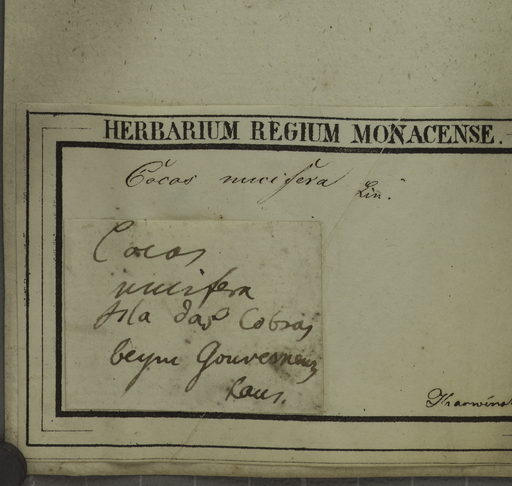 HERBARIUM REGIUM MONACENSE.
Cocos nucifera Lin.
Cocos
nucifera
Isla das Cobras
beym Gouverneurs
Haus.